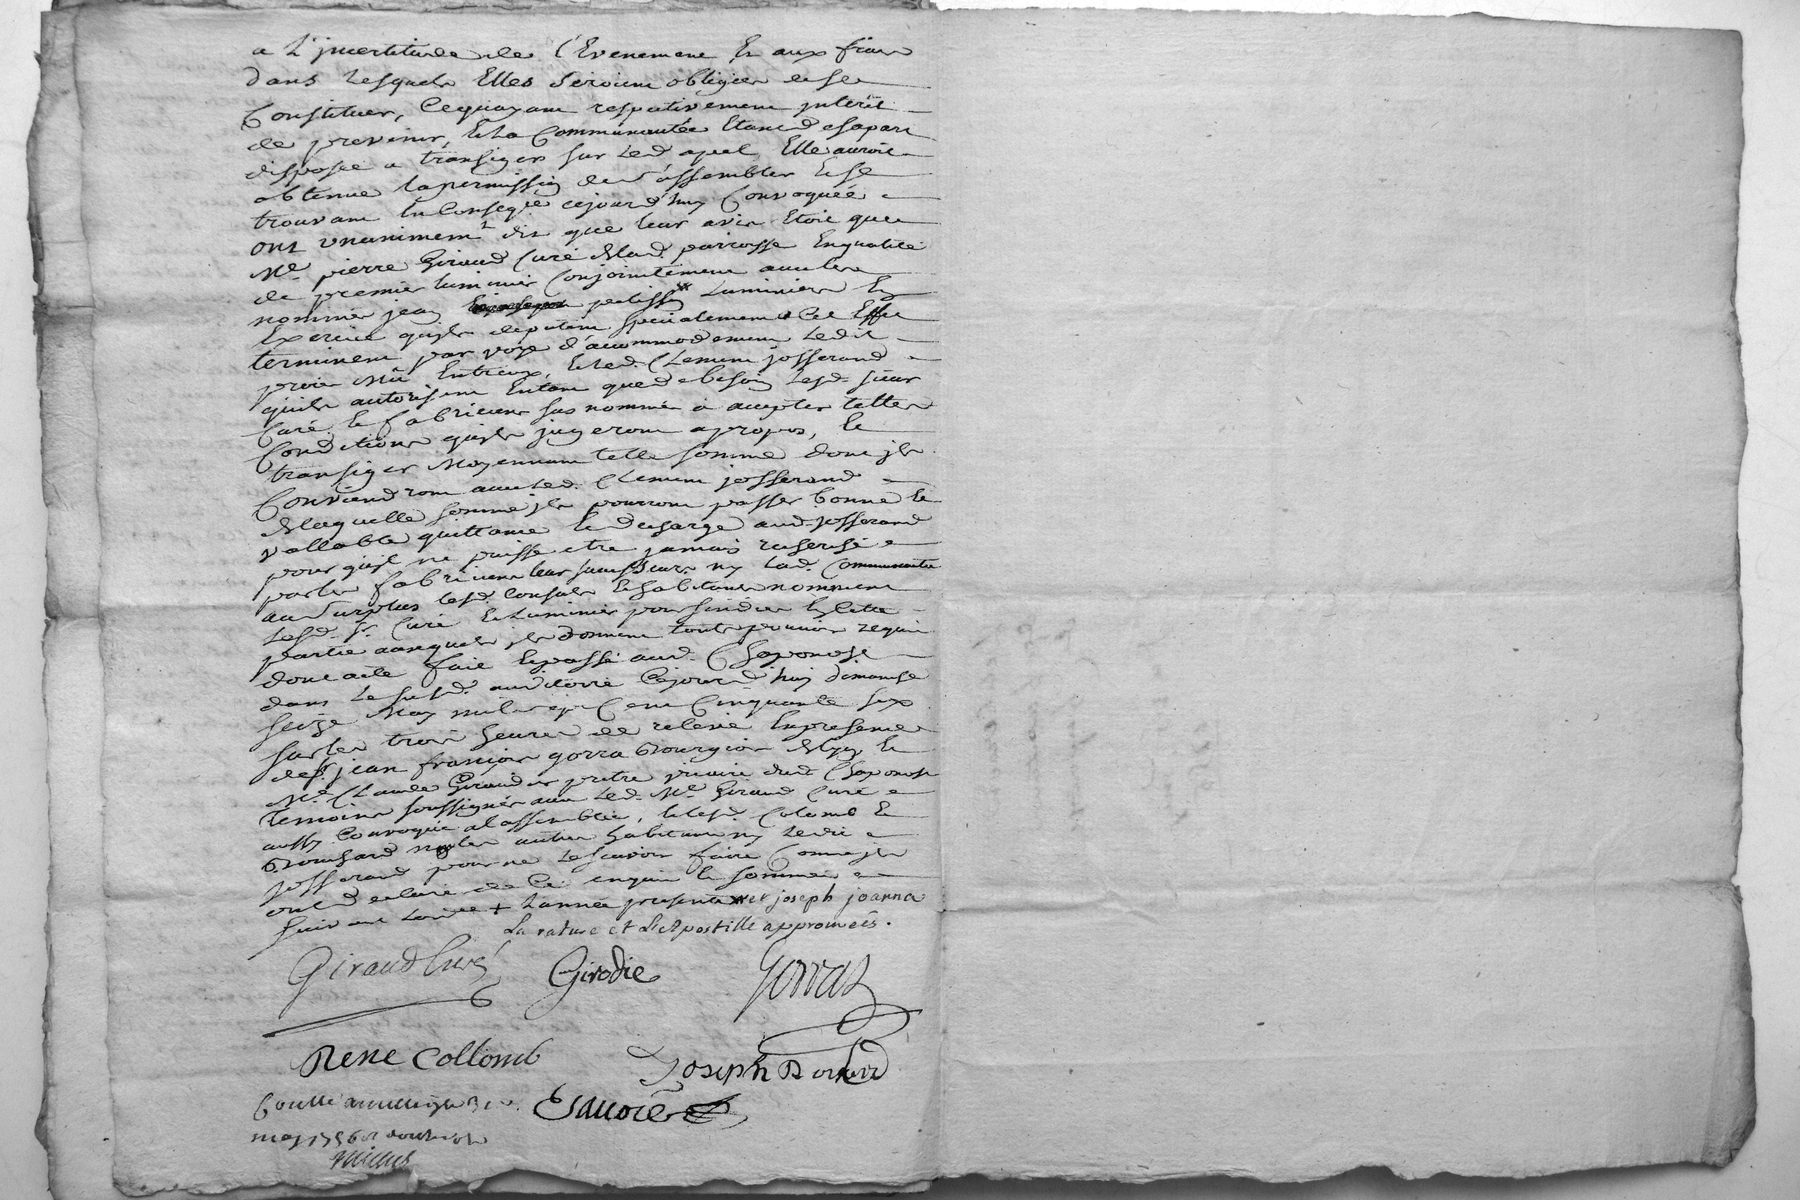 a L'jncertitude de l'Evenement Et aux frais
dans Lesquels Elles seroient obligées de se
Constituer, Cequayant respectivement jnterêt
de prevenir, Et La Communautée Etant desapart
disposée a transiger sur Led. apel Elle auroit
obtenue lapermission de s'assembler Et se
trouvant En Conseqce cejourd'huy Convoquée
ont unanimemt dit que leur avis Etoit que
Me. pierre Giraud Curé de lad. parroisse Enqualité
de premier luminier Conjointement avec les
nommés jean pelissy Luminiers En
Exercice qu'jls deputent specialement a Cet Effet
terminent par voye d'accommodement Ledit
procès Mû Entreux, Et led. Clement josserand
qu'ils autorisent Entant que de besoin Lesd. sieur
Curé et fabriciens sus nommés a accepter telles
Conditions qu'jls jugeront apropos, Et
transiger Moyennant telle somme dont jls
Conviendront avec Led. Clement josserand
de laquelle somme jls pourront passer bonne Et
vallable quittance Et decharge aud. josserand
pour qu'jl ne puisse etre jamais recherché
par les fabriciens leur successeurs ny lad. Communauté
au Surplus lesd. Consuls Et habitans nomment
Lesd. Sr. Curé Et Luminiers pour sindics En Cette
partie auxquels jls donnent touts pouvoirs requis
dont acte fait Et passé aud. Chaponost
dans le susd. auditoire Cejourd'huy dimanche
seize May mil sept Cent Cinquante six
sur les trois heures de relevée En presence
de sr. jean françois gorra Bourgeois de Lyon Et
Me. Claude Girodie pretre vicaire dud. Chaponost
temoins soussignés avec Led. Me. Giraud Curé
aussy Convoqué a l'assemblée, Et lesd. Colomb Et
Bouchard non les autres habitans ny Ledit
josserand pour ne le sçavoir faire Comme jls
ont declaré de Ce enquis Et sommés
suivant Lordce + Lannée presente et joseph joanna
La rature et L'Apostille approuvées.
Giraud Curé Girodie Gorras
Rene Collomb Joseph Bouchard
may 1756